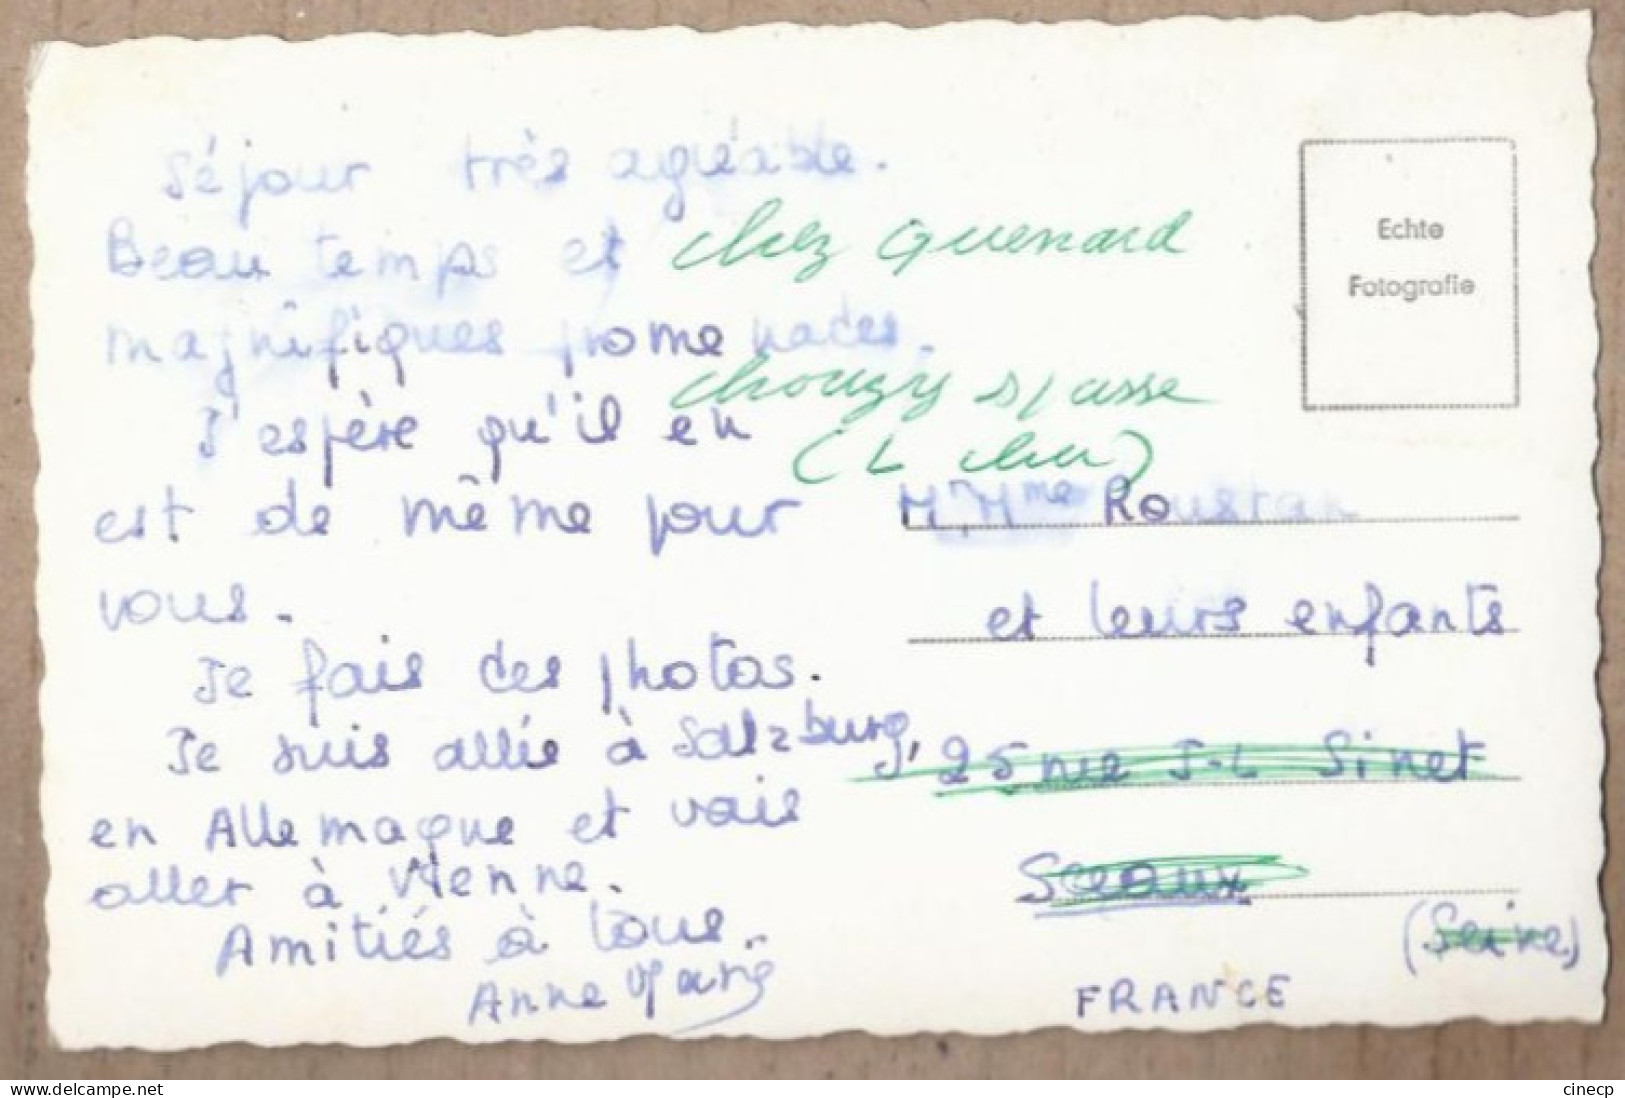 Séjour très agréable.
Beau temps et
magnifiques promenades.
J'espère qu'il en
est de même pour
vous.
Je fais des photos.
Je suis allée à Salzburg,
en Allemagne et vais
aller à Vienne.
Amitiés à tous.
Anne Marie
chez Guenard
chouzy s/ cisse
(L cher)
Echte
Fotografie
Mr Mme Roustan
et leurs enfants
25 rue J-L Sinet
Sceaux
(Seine)
FRANCE
delcampe.net
cinecp